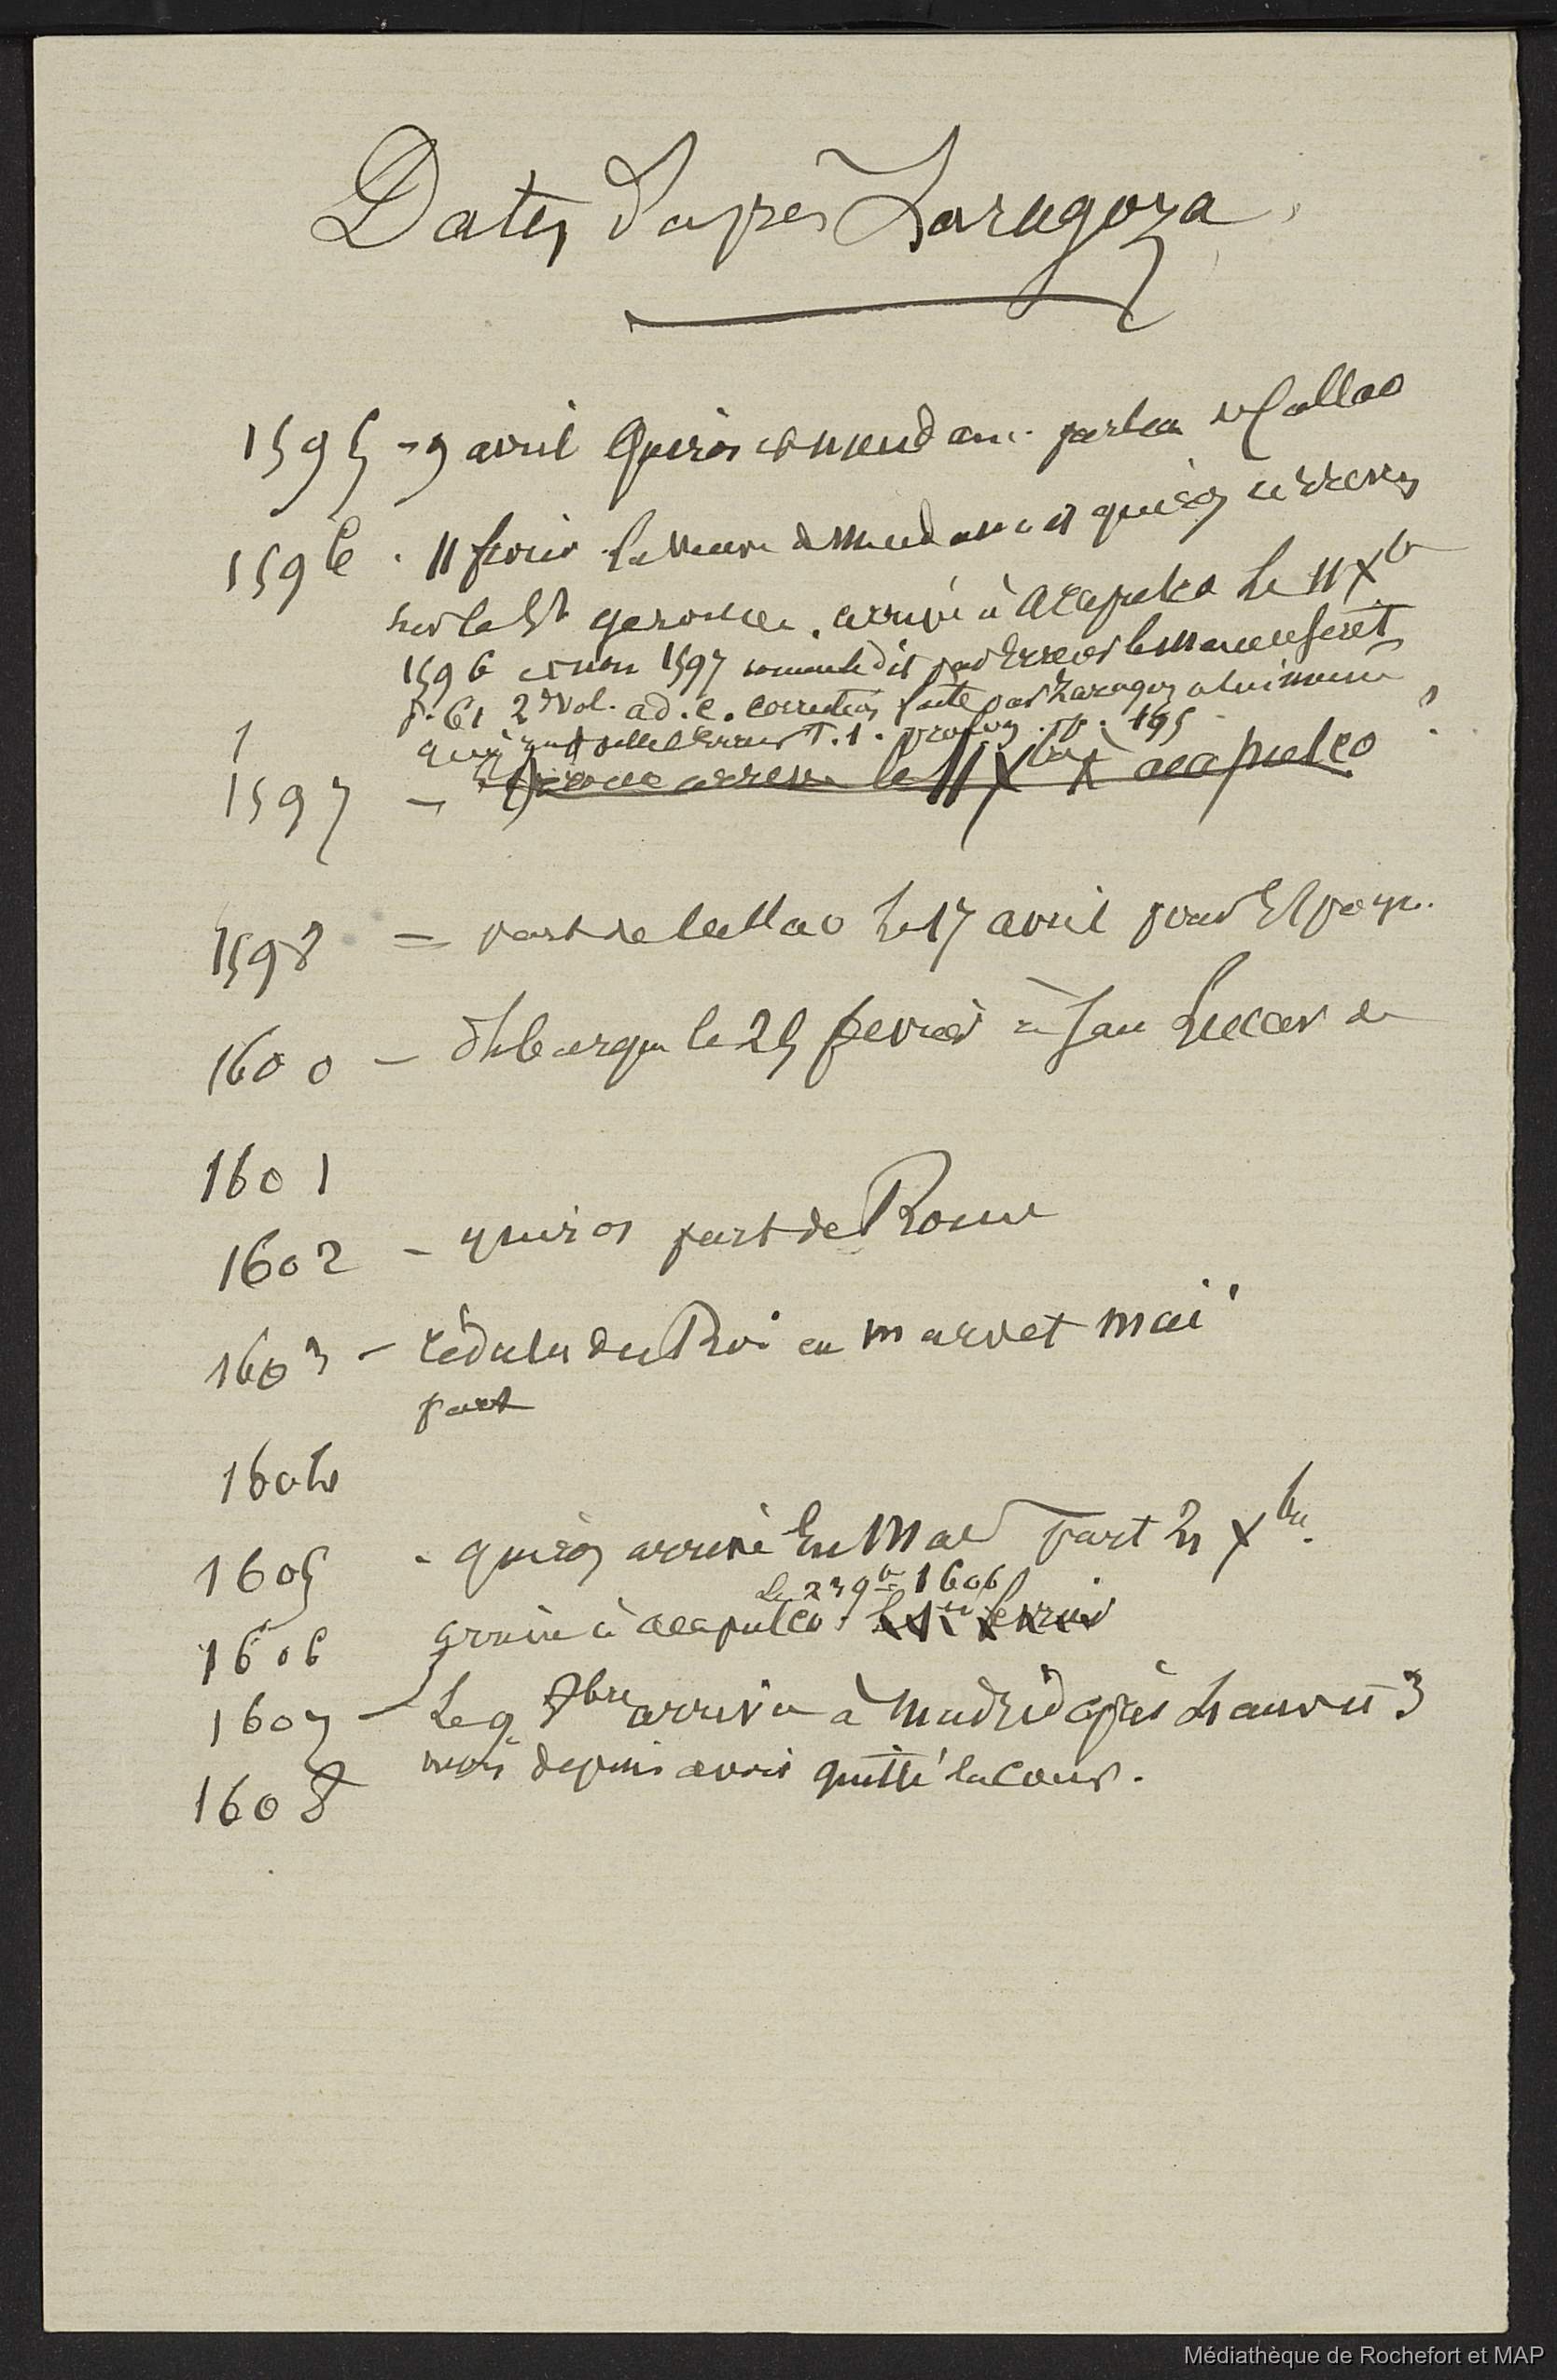 Dates d'apres Zaragoza
1595 - 9 avril Quiros et mendana parten de Callao
1596 . 11 fevrier la veuve de mendana et quiros arrivent
sur le St geronimo. arrivée à Acapulco le 11 Xbre
1596 et non 1597 comme le dit par Erreur le manuscrit
p. 61 2d Vol. ad. c. correction faite par Zaragoza lui meme
1 qui cette Erreur T. 1. p. 195
1597 - arrive le 11 Xbre à acapulco
1598 = part de Callao le 17 avril pour Espagne.
1600 - débarque le 25 fevrier à San Lucar de
1601
1602 - quiros part de Rome
1603 - cédules du Roi en mars et mai
part
1604
1605 - quiros arrive En Mars part 21 Xbre.
Le 23 9bre 1606
1606 arrive à acapulco le 1er fevrier
1607 - Le 9 8bre arrive à Madrid après 11 ans et 3
mois depuis avoir quitté la cour.
1608
Médiathèque de Rochefort et MAP